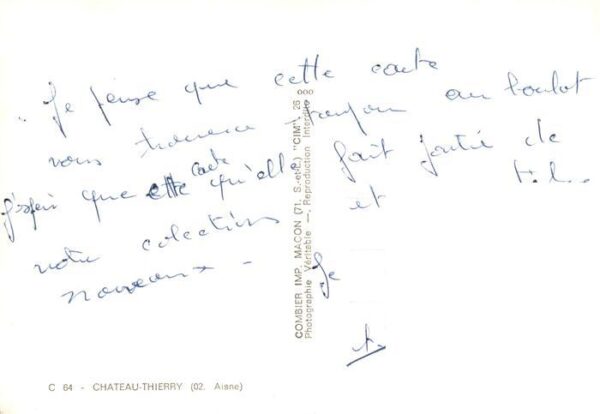 Je pense que cette carte
vous trouvera toujours au boulot
J'espér que cette carte qu'elle fait partie de
votre colection et
nouveaux - Je
COMBIER IMP. MACON (71. S.-et-L.) "CIM"
Photographie Véritable - Reproduction Interdite
26
C 64 - CHATEAU-THIERRY (02. Aisne)